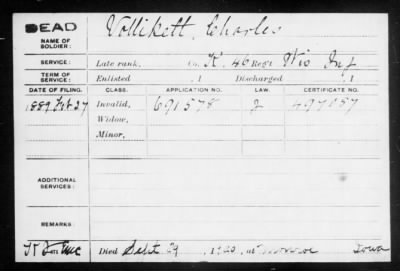 DEAD
NAME OF SOLDIER: Vollikett, Charles
SERVICE: Late rank, Co. K, 46 Reg't Wis Inf
TERM OF SERVICE: Enlisted , 1 Discharged , 1
DATE OF FILING. CLASS. APPLICATION NO. LAW. CERTIFICATE NO.
1889 Feb 27 Invalid, 691578
Widow,
Minor,
ADDITIONAL SERVICES:
REMARKS:
Died Sept 29 at Monroe Iowa